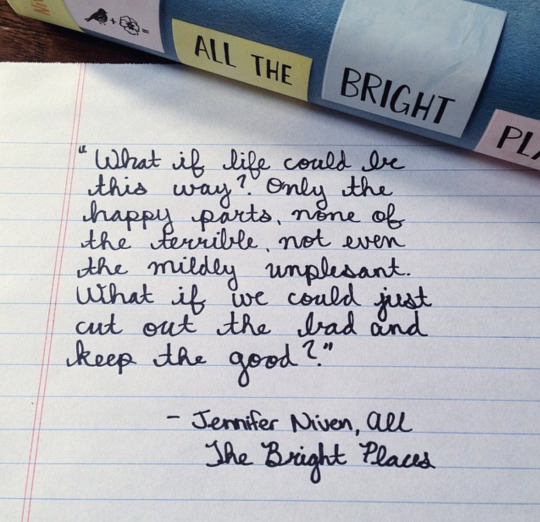 ALL THE
BRIGHT
PLA
"What if life could be
this way? Only the
happy parts, none of
the terrible, not even
the mildly unplesant.
What if we could just
cut out the bad and
keep the good?"
- Jennifer Niven, All
The Bright Places